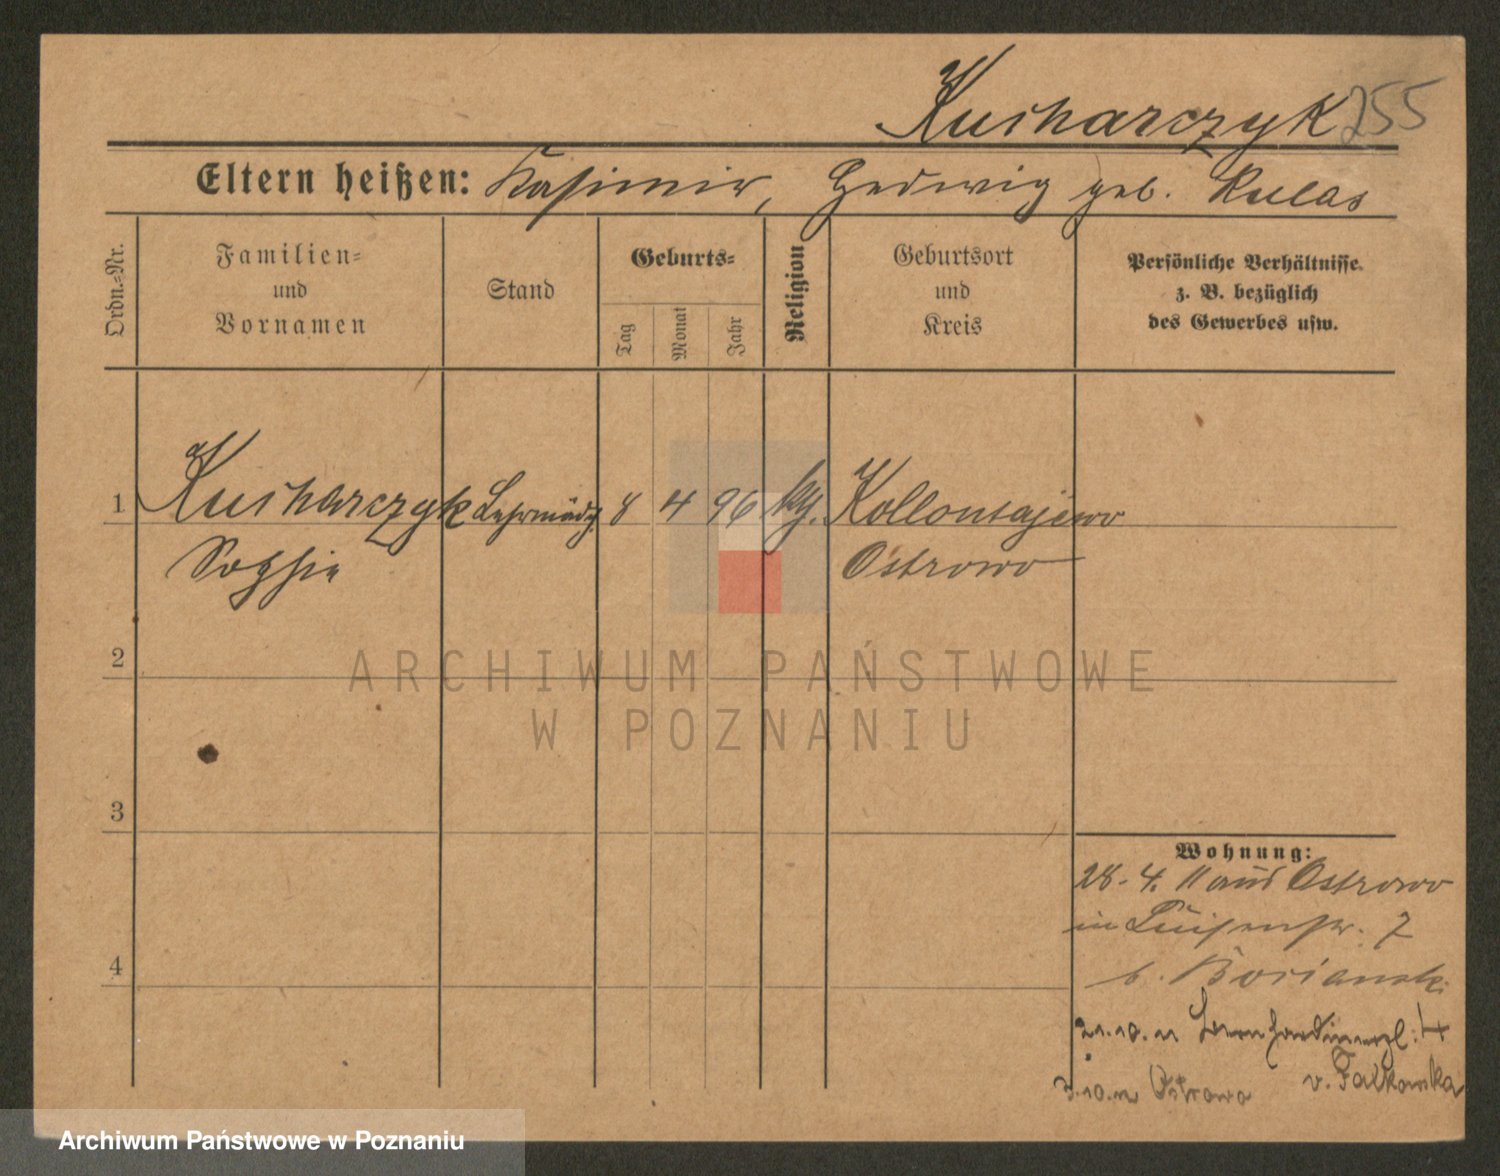 Kucharczyk 255
Eltern heißen: Kasimir, Hedwig geb. Kulas
Ordn.-Nr.
Familien-
und
Vornamen
Stand
Geburts-
Tag
Monat
Jahr
Religion
Geburtsort
und
Kreis
Persönliche Verhältnisse
z. B. bezüglich
des Gewerbes usw.
1 Kucharczyk Lehrmädch. 8 4 96 kth. Kollontajewo
Sophie Ostrowo
2
3
4
Wohnung:
28.4.11 aus Ostrowo
in Luisenstr. 7
b. Borianski
21.10.11 Bernhardinerpl: 4
v. Falkowska
3.10.12 Ostrowo
ARCHIWUM PAŃSTWOWE
W POZNANIU
Archiwum Państwowe w Poznaniu